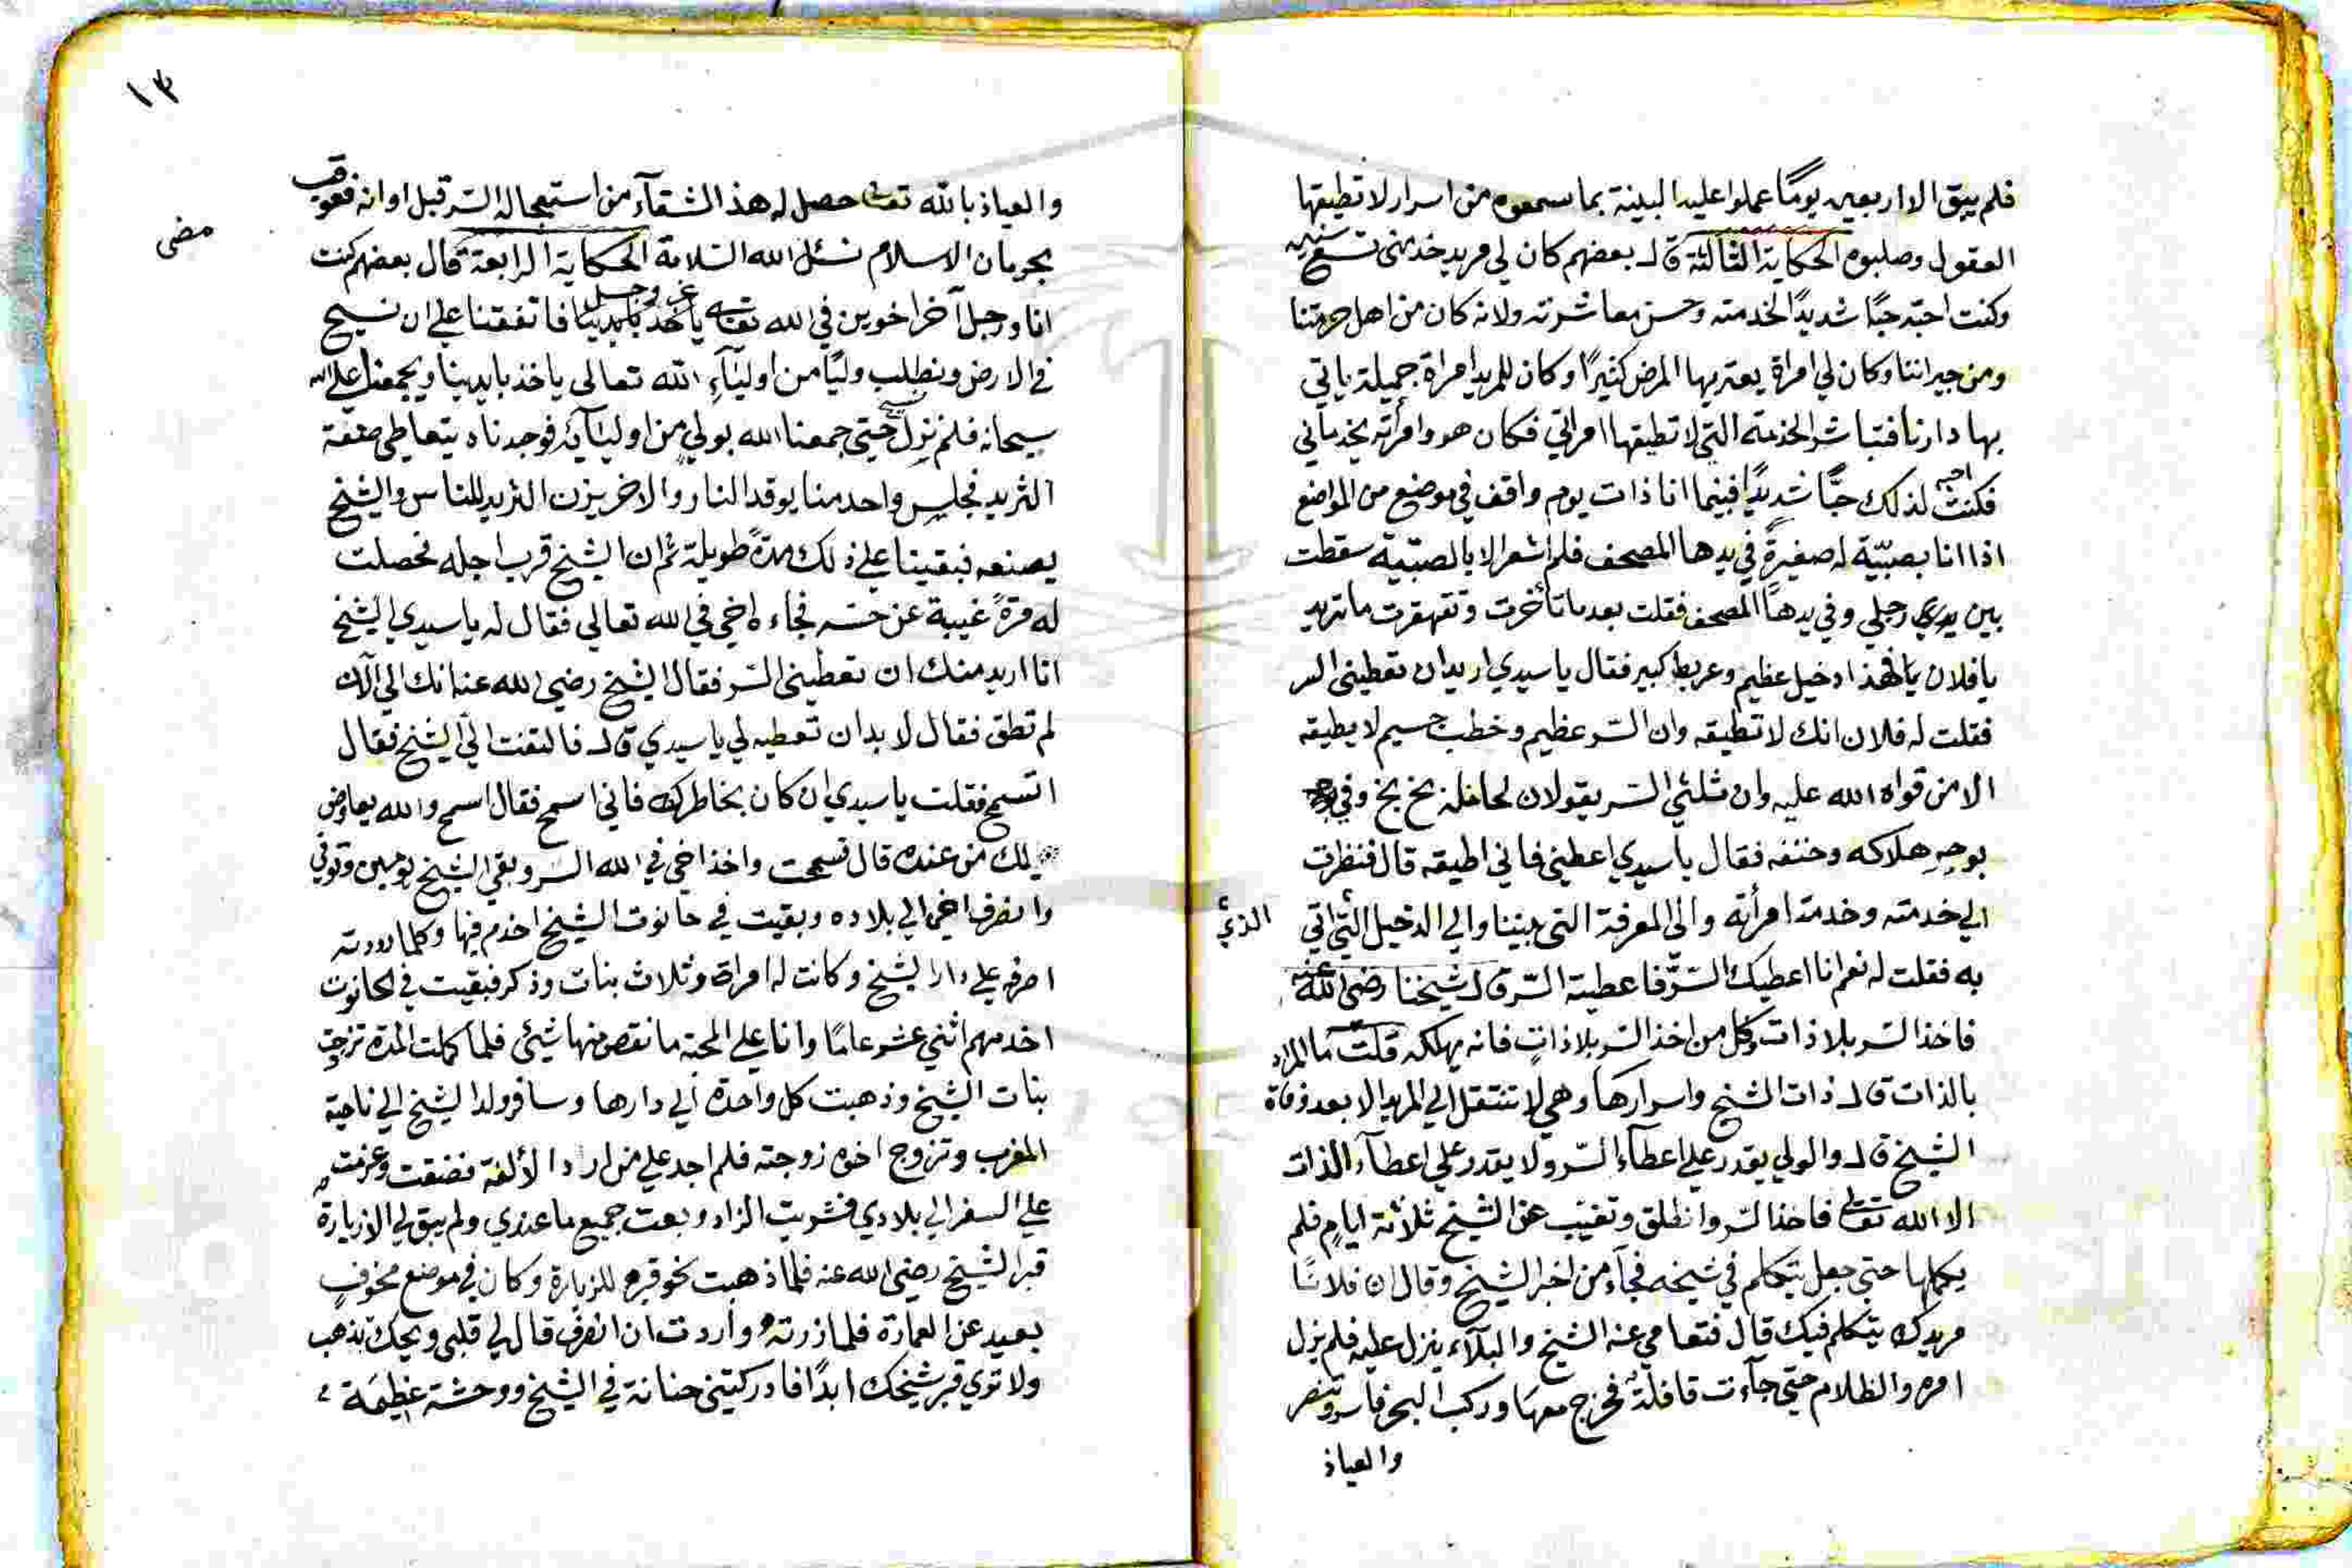 فلم يبق الا اربعين يومًا عملوا عليه البينة بما سمعوه من اسرار لا تطيقها
العقول وصلبوه الحكاية الثالثة قال بعضهم كان لي مريد خدمني تسع سنين
وكنت احبّه حبًا شديدًا لخدمته وحسن معاشرته ولانه كان من اهل حومتنا
ومن جيراننا وكان لي امراة يعتريها المرض كثيرًا وكان للمريد امراة جميلة ياتي
بها دارنا فتباشر الخدمة التي لا تطيقها امراتي فكان هو وامرأته يخدماني
فكنت احبه لذلك حبًّا شديدًا فبينما انا ذات يوم واقف في موضع من المواضع
اذا انا بصبيّة له صغيرةٍ في يدها المصحف فلم اشعر الا بالصبيّة سقطت
بين رجلي وفي يدها المصحف فقلت بعد ما تأخرت وتقهقرت ما تريد
يا فلان فهذا دخيل عظيم وعربط كبير فقال يا سيدي اريد ان تعطيني السر
فقلت له فلان انك لا تطيقه وان السّر عظيم وخطب جسيم لا يطيقه
الا من قواه الله عليه وان ثلثي السّر يقولان لحامله بخ بخ وفي
بوجهِ هلاكه وحتفه فقال يا سيدي اعطيني فاني اطيقه قال فنظرت
الي خدمته وخدمة امرأته والى المعرفة التي بيننا والي الدخيل الذي اتي
به فقلت له نعم انا اعطيك السّرّ فاعطيته السّر قال شيخنا رضي الله عنه
فاخذ السّر بلا ذات وكل من اخذ السّر بلا ذاتٍ فانه يهلكه قلت ما المراد
بالذات قال ذات الشيخ واسرارها وهي لا تنتقل الي المريد الا بعد وفاة
الشيخ قال والولي يقدر علي اعطآء السّر ولا يقدر علي اعطآء الذات
الا الله تعالى فاخذ السّر وانطلق وتغيّب عن الشيخ ثلاثة ايامٍ فلم
يكملها حتي جعل يتكلم في شيخه فجآء من اخبر الشيخ وقال ان فلانًا
مريدك يتكلم فيك قال فتعامي عنه الشيخ والبلآء ينزل عليه فلم يزل
امره والظلام حتي جآءت قافلة فخرج معها وركب البحر فاسر وتنصر
والعياذ
١٣
والعياذ بالله تعالى حصل له هذا الشقآء من استعجاله السّر قبل اوانه فعوقب
بحرمان الاسلام نسئل الله السّلامة الحكاية الرابعة قال بعضهم كنت
مضى
انا ورجل آخر اخوين في الله عز وجل فاتفقنا علي ان نسيح
في الارض ونطلب وليًا من اوليَآءِ الله تعالى ياخذ بايدينا ويجمعنا علي الله
سبحانه فلم نزل نسيح حتي جمعنا الله بولي من اوليآئه فوجدناه يتعاطي صنعة
الثريد فجلس واحد منا يوقد النار والاخر يزن الثريد للناس والشيخ
يصنعه فبقينا علي ذلك مدةً طويلة ثم ان الشيخ قرب اجله فحصلت
له مرةً غيبة عن حسّه فجاءه اخي في الله تعالي فقال له يا سيدي الشيخ
انا اريد منك ان تعطيني السّر فقال الشيخ رضي الله عنه انك الي الآن
لم تطق فقال لا بد ان تعطيه لي يا سيدي قال فالتفت اليّ الشيخ فقال
اتسمح فقلت يا سيدي ان كان بخاطرك فاني اسمح فقال اسمح والله يعاوض
لك من عنده قال فسمحت واخذ اخي في الله السّر وبقي الشيخ يومين وتوفي
وانصرف اخي الي بلاده وبقيت في حانوت الشيخ اخدم فيها وكلما
اصرفه علي دار الشيخ وكانت له امراة وثلاث بنات وذكر فبقيت في الحانوت
اخدمهم اثني عشر عامًا وانا علي المحبة ما نقص منها شيئ فلما كملت المدة تزوجت
بنات الشيخ وذهبت كل واحدة الي دارها وسافر ولد الشيخ الي ناحية
المغرب وتزوج اخوه زوجته فلم اجد علي من الألفة فضقت وعزمت
علي السفر الي بلادي فشريت الزاد وبعت جميع ما عندي ولم يبق لي الا زيارة
قبر الشيخ رضي الله عنه فلما ذهبت نحو قبره للزيارة وكان في موضع مخوفٍ
بعيد عن العمارة فلما زرته وأردت ان انصرف قال لي قلبي ويحك تذهب
ولا تري قبر شيخك ابدًا فادركتني حنانة في الشيخ ووحشة عظيمة